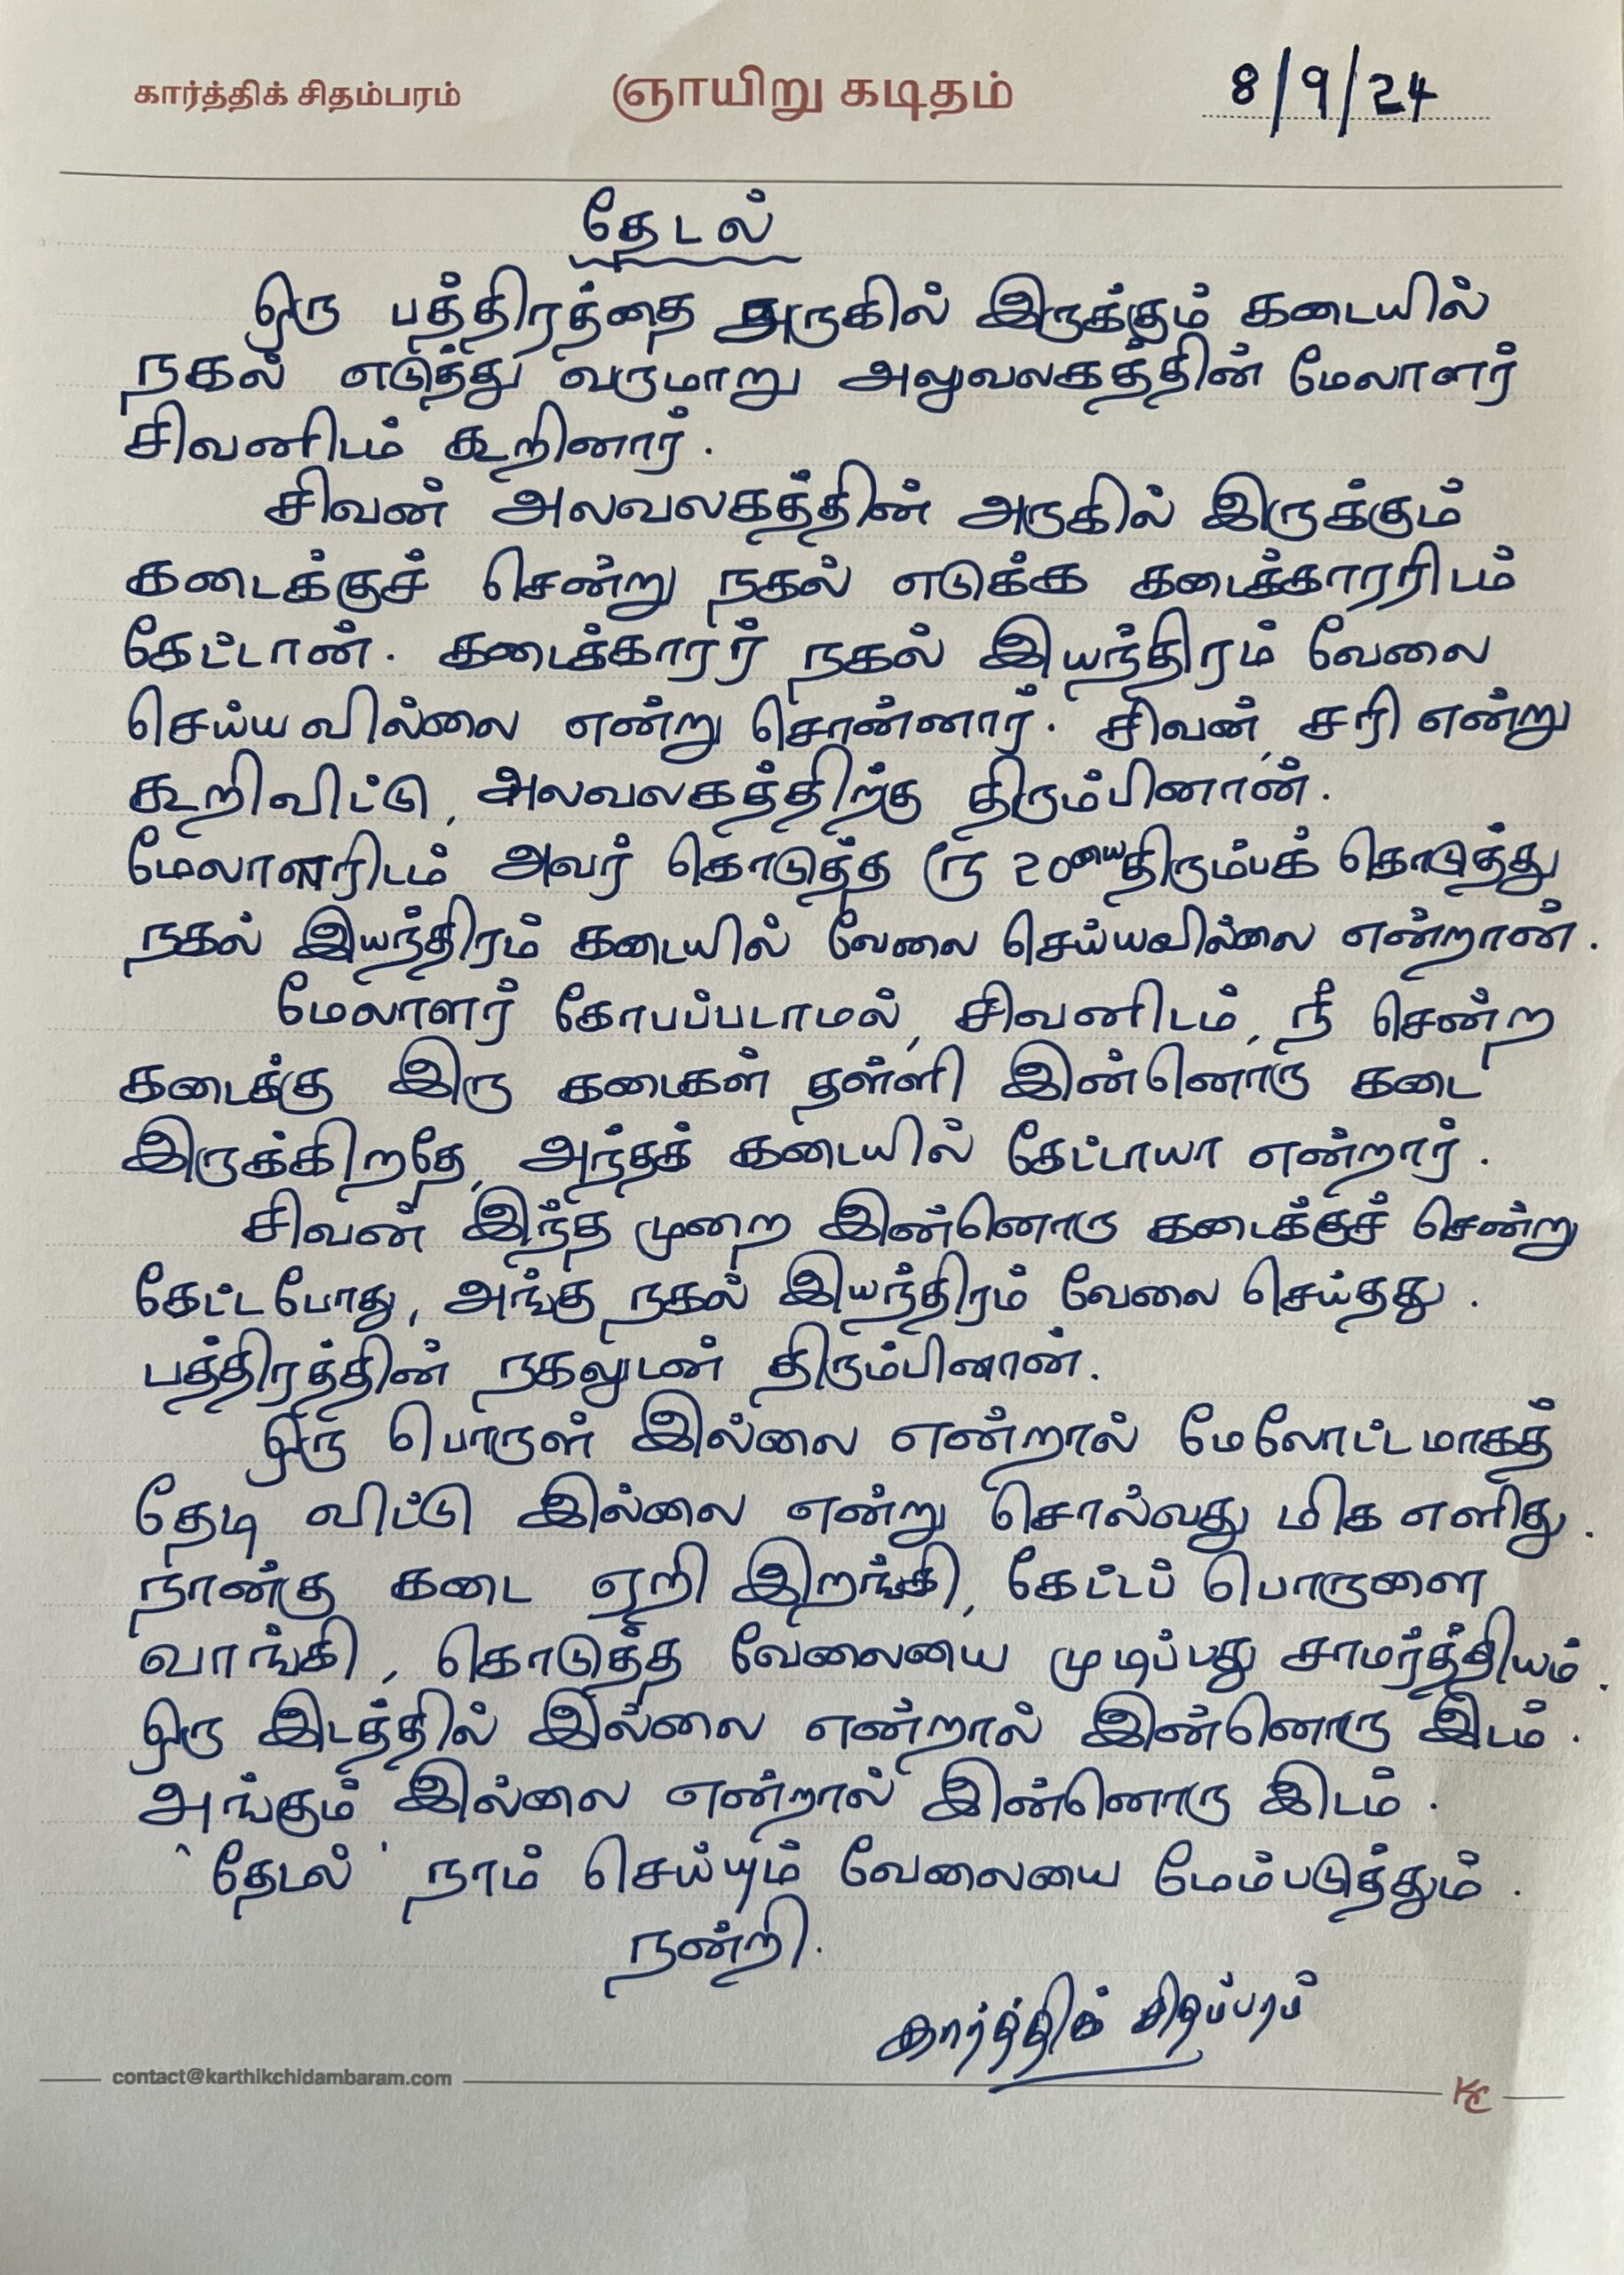 கார்த்திக் சிதம்பரம் ஞாயிறு கடிதம் 8/9/24
தேடல்
ஒரு பத்திரத்தை அருகில் இருக்கும் கடையில்
நகல் எடுத்து வருமாறு அலுவலகத்தின் மேலாளர்
சிவனிடம் கூறினார்.
சிவன் அலவலகத்தின் அருகில் இருக்கும்
கடைக்குச் சென்று நகல் எடுக்க கடைக்காரரிடம்
கேட்டான். கடைக்காரர் நகல் இயந்திரம் வேலை
செய்ய வில்லை என்று சொன்னார். சிவன், சரி என்று
கூறிவிட்டு, அலவலகத்திற்கு திரும்பினான்.
மேலாளரிடம் அவர் கொடுத்த ரூ 20யை திரும்பக் கொடுத்து
நகல் இயந்திரம் கடையில் வேலை செய்யவில்லை என்றான்.
மேலாளர் கோபப்படாமல், சிவனிடம், நீ சென்ற
கடைக்கு இரு கடைகள் தள்ளி இன்னொரு கடை
இருக்கிறதே, அந்தக் கடையில் கேட்டாயா என்றார்.
சிவன் இந்த முறை இன்னொரு கடைக்குச் சென்று
கேட்ட போது, அங்கு நகல் இயந்திரம் வேலை செய்தது.
பத்திரத்தின் நகலுடன் திரும்பினான்.
ஒரு பொருள் இல்லை என்றால் மேலோட்டமாகத்
தேடி விட்டு இல்லை என்று சொல்வது மிக எளிது.
நான்கு கடை ஏறி இறங்கி, கேட்டப் பொருளை
வாங்கி, கொடுத்த வேலையை முடிப்பது சாமர்த்தியம்.
ஒரு இடத்தில் இல்லை என்றால் இன்னொரு இடம்.
அங்கும் இல்லை என்றால் இன்னொரு இடம்.
'தேடல்' நாம் செய்யும் வேலையை மேம்படுத்தும்.
நன்றி.
கார்த்திக் சிதம்பரம்
contact@karthikchidambaram.com KC